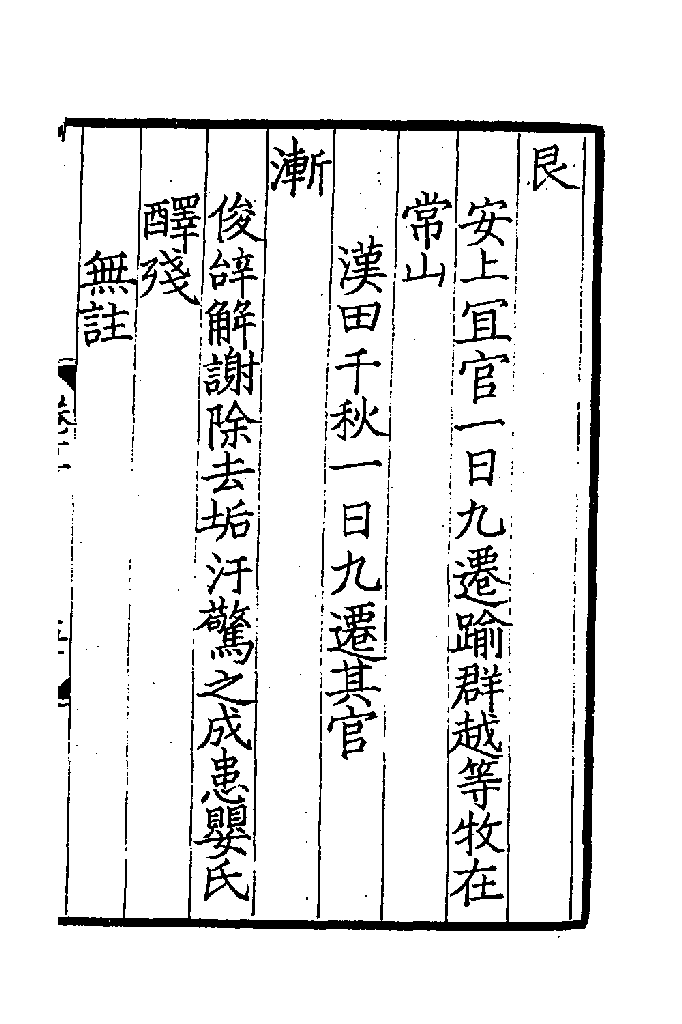 艮
安上冝官一日九遷踰群越等牧在
常山
漢田千秋一日九遷其官
漸
俊辝解謝除去垢汙驚之成患嬰氏
醳殘
無註